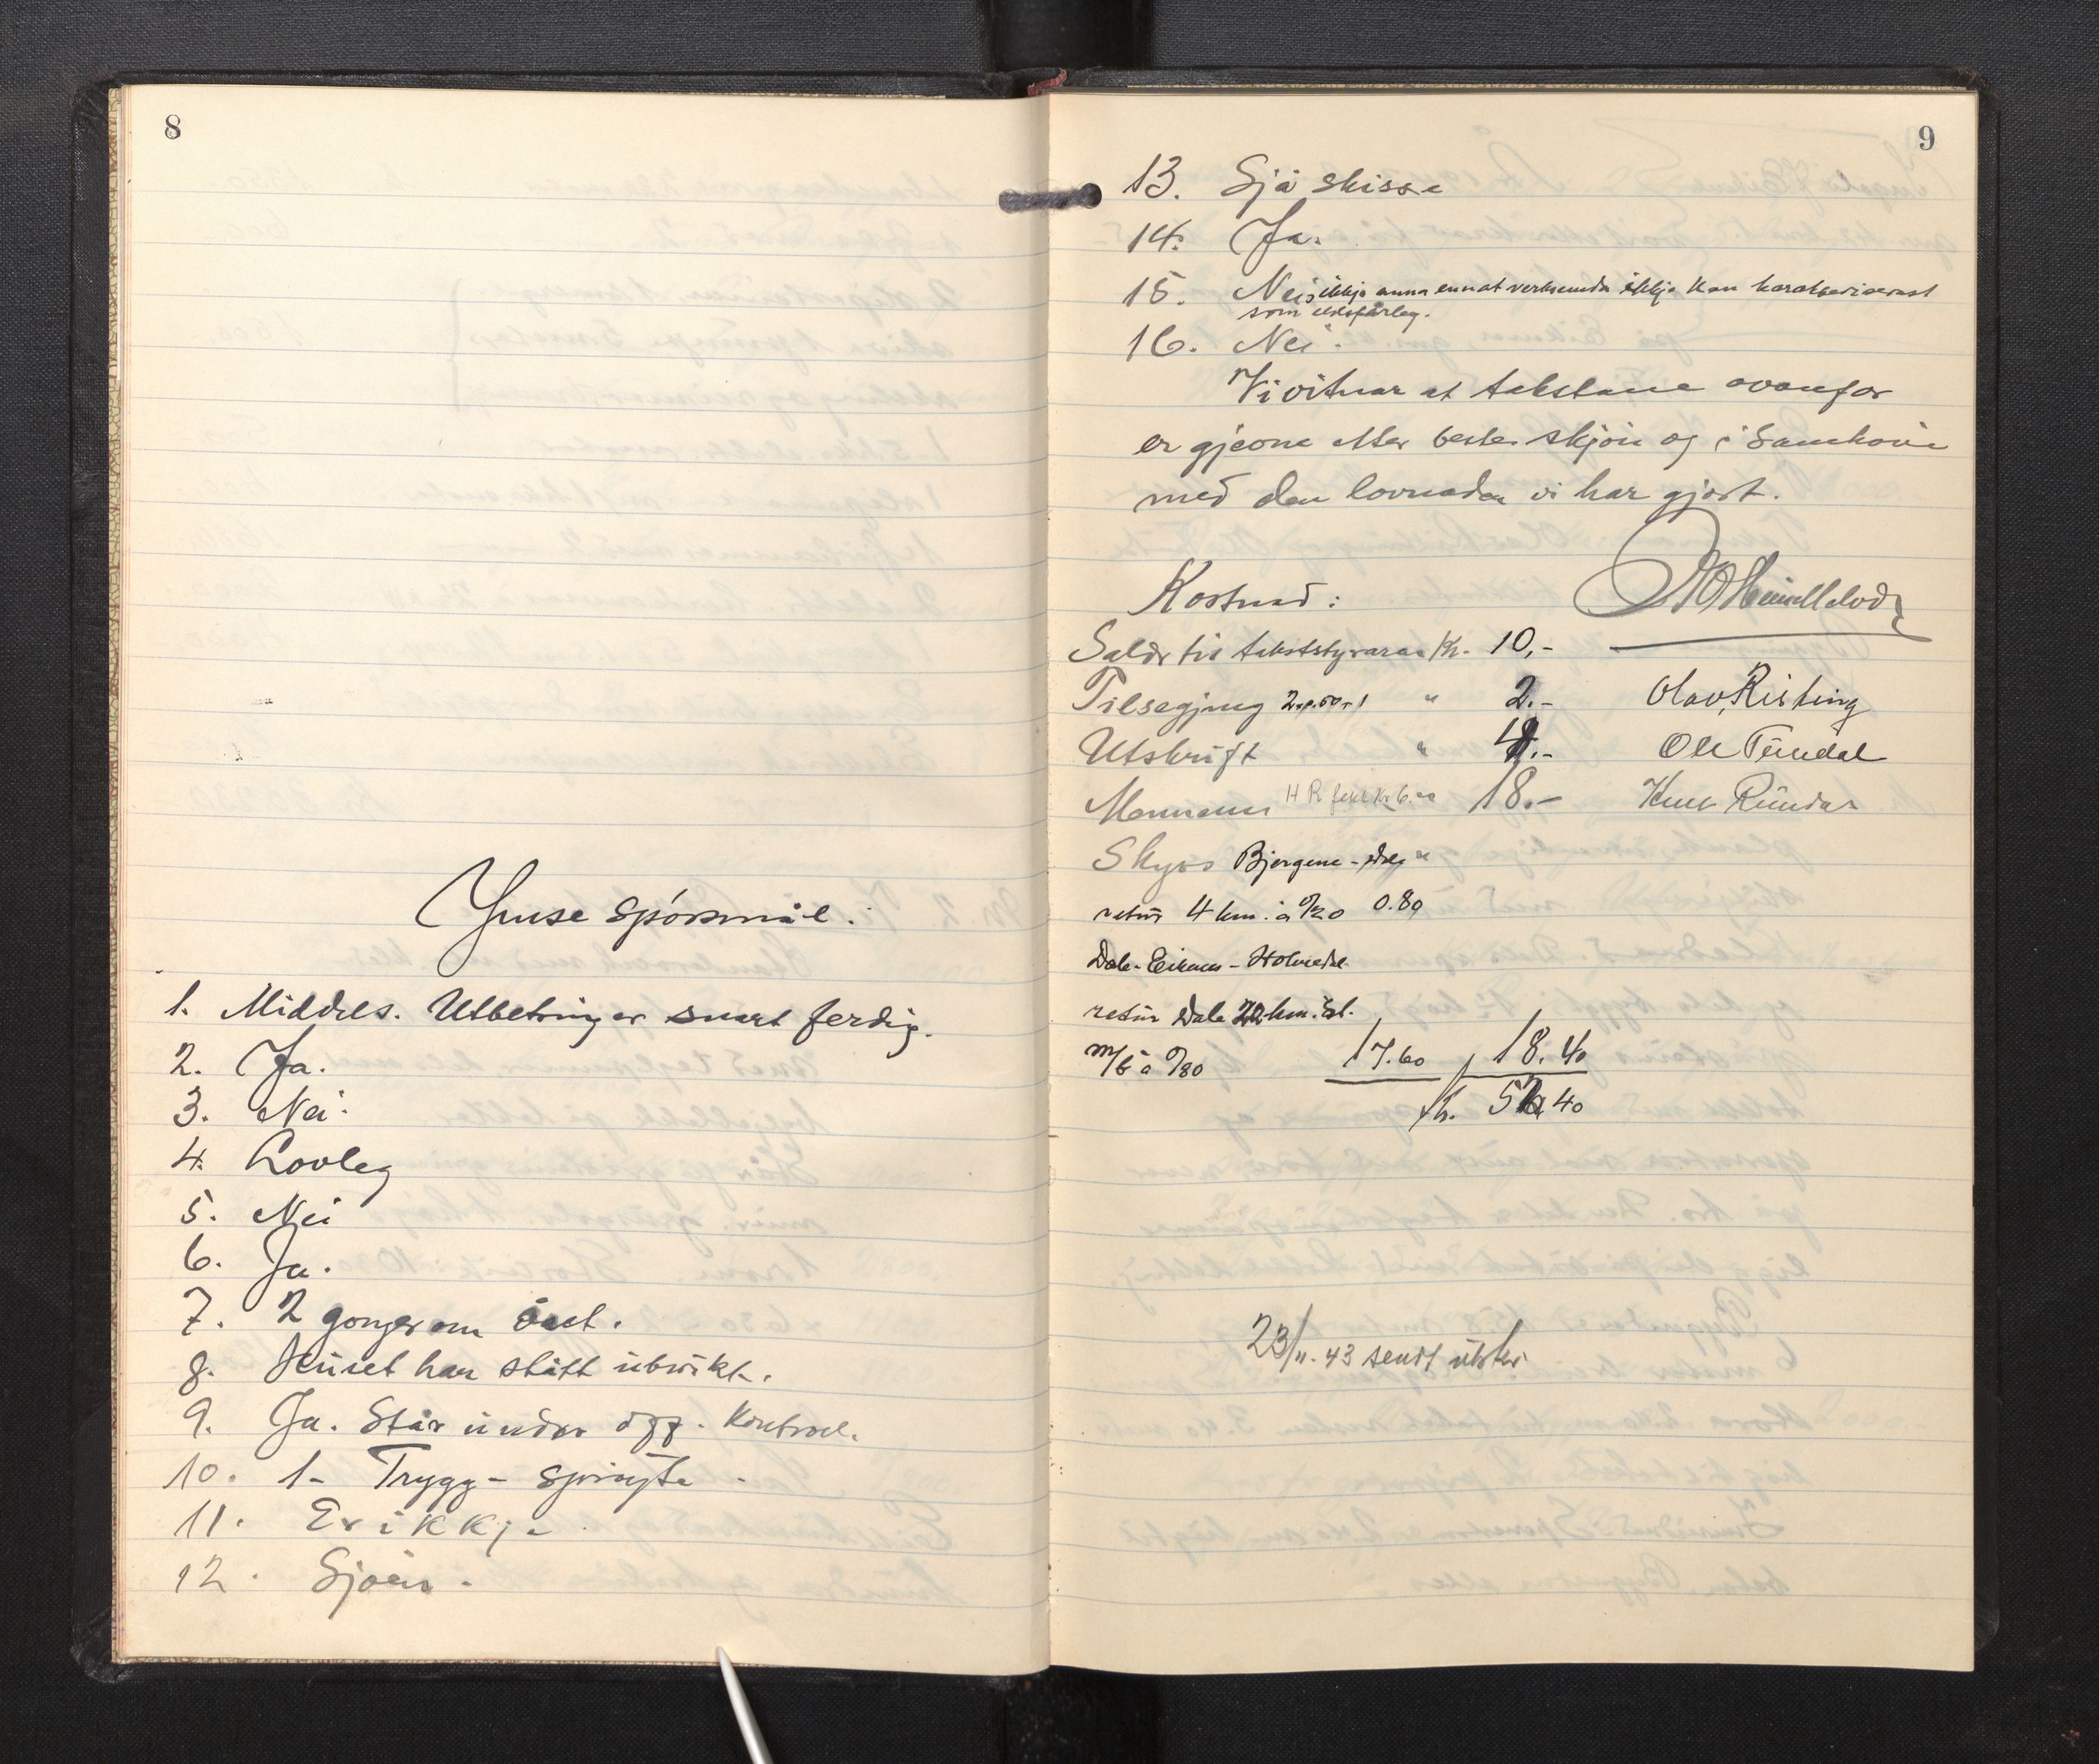 8
Ymse spörsmål.
1. Middels. Utbetring er snart ferdig.
2. Ja.
3. Nei.
4. Lovleg
5. Nei
6. Ja.
7. 2 gonger om året.
8. Huset har stått ubrukt.
9. Ja. Står under off. Kontroll.
10. 1- Trygg- sprøyte
11. Er ikkje
12. Sjøen.
9
13. Sjå skisse
14. Ja.
15. Nei, ikkje anna enn at verksemda ikkje kan karakteriserast
som eldsfårleg.
16. Nei.
Vi vitnar at takstane ovanfor
er gjeone etter beste skjön og i samhöve
med den lovnaden vi har gjort.
Kostnad:
Salær til takststyraren Kr. 10,-
Tilsegjing " 2.- Olav Risting
Utskrift " Ole Tundal
Mennene 18.-
Skyss Bjergene - Dale "
retur 4 km. à 0/20 0.80
Dale - Eikenes - Holmedal
retur Dale 22 km.
m/b à 0/80 17.60 18.40
Kr. 40
23/11. 43 sendt utskr.